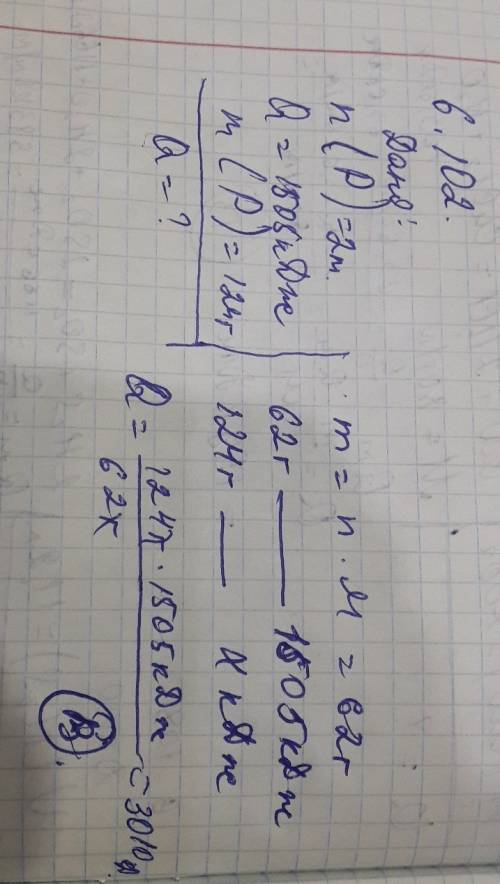 6.102.
Дано:
n(P)=2м.
Q = 1505кДж
m(P)=124г
Q = ?
m = n · M = 62г
62г — 1505кДж
124г — x кДж
Q = 124г · 1505кДж / 62г = 3010